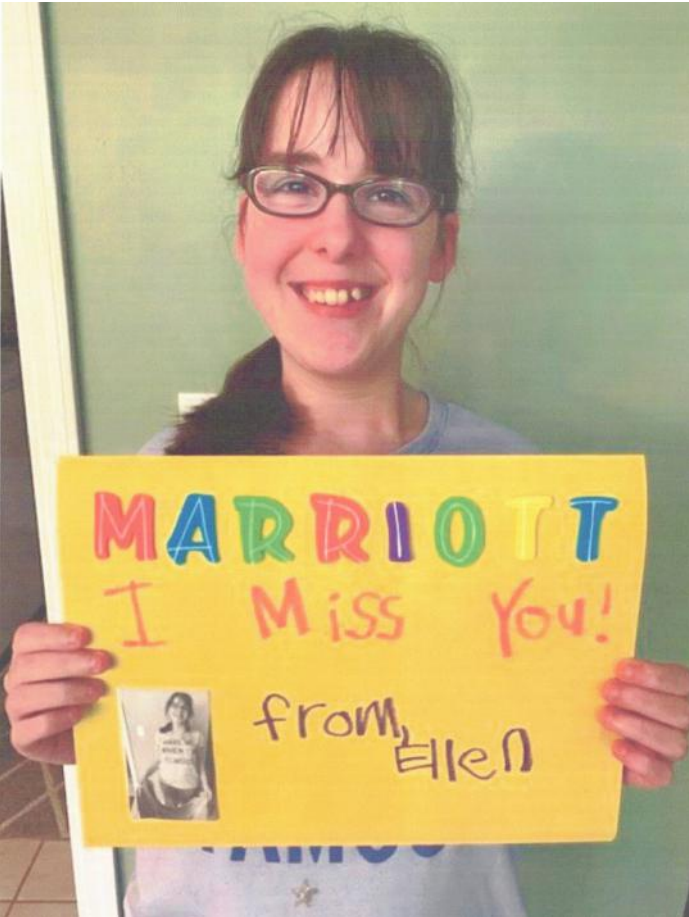 MARRIOTT
I Miss You!
from,
Ellen